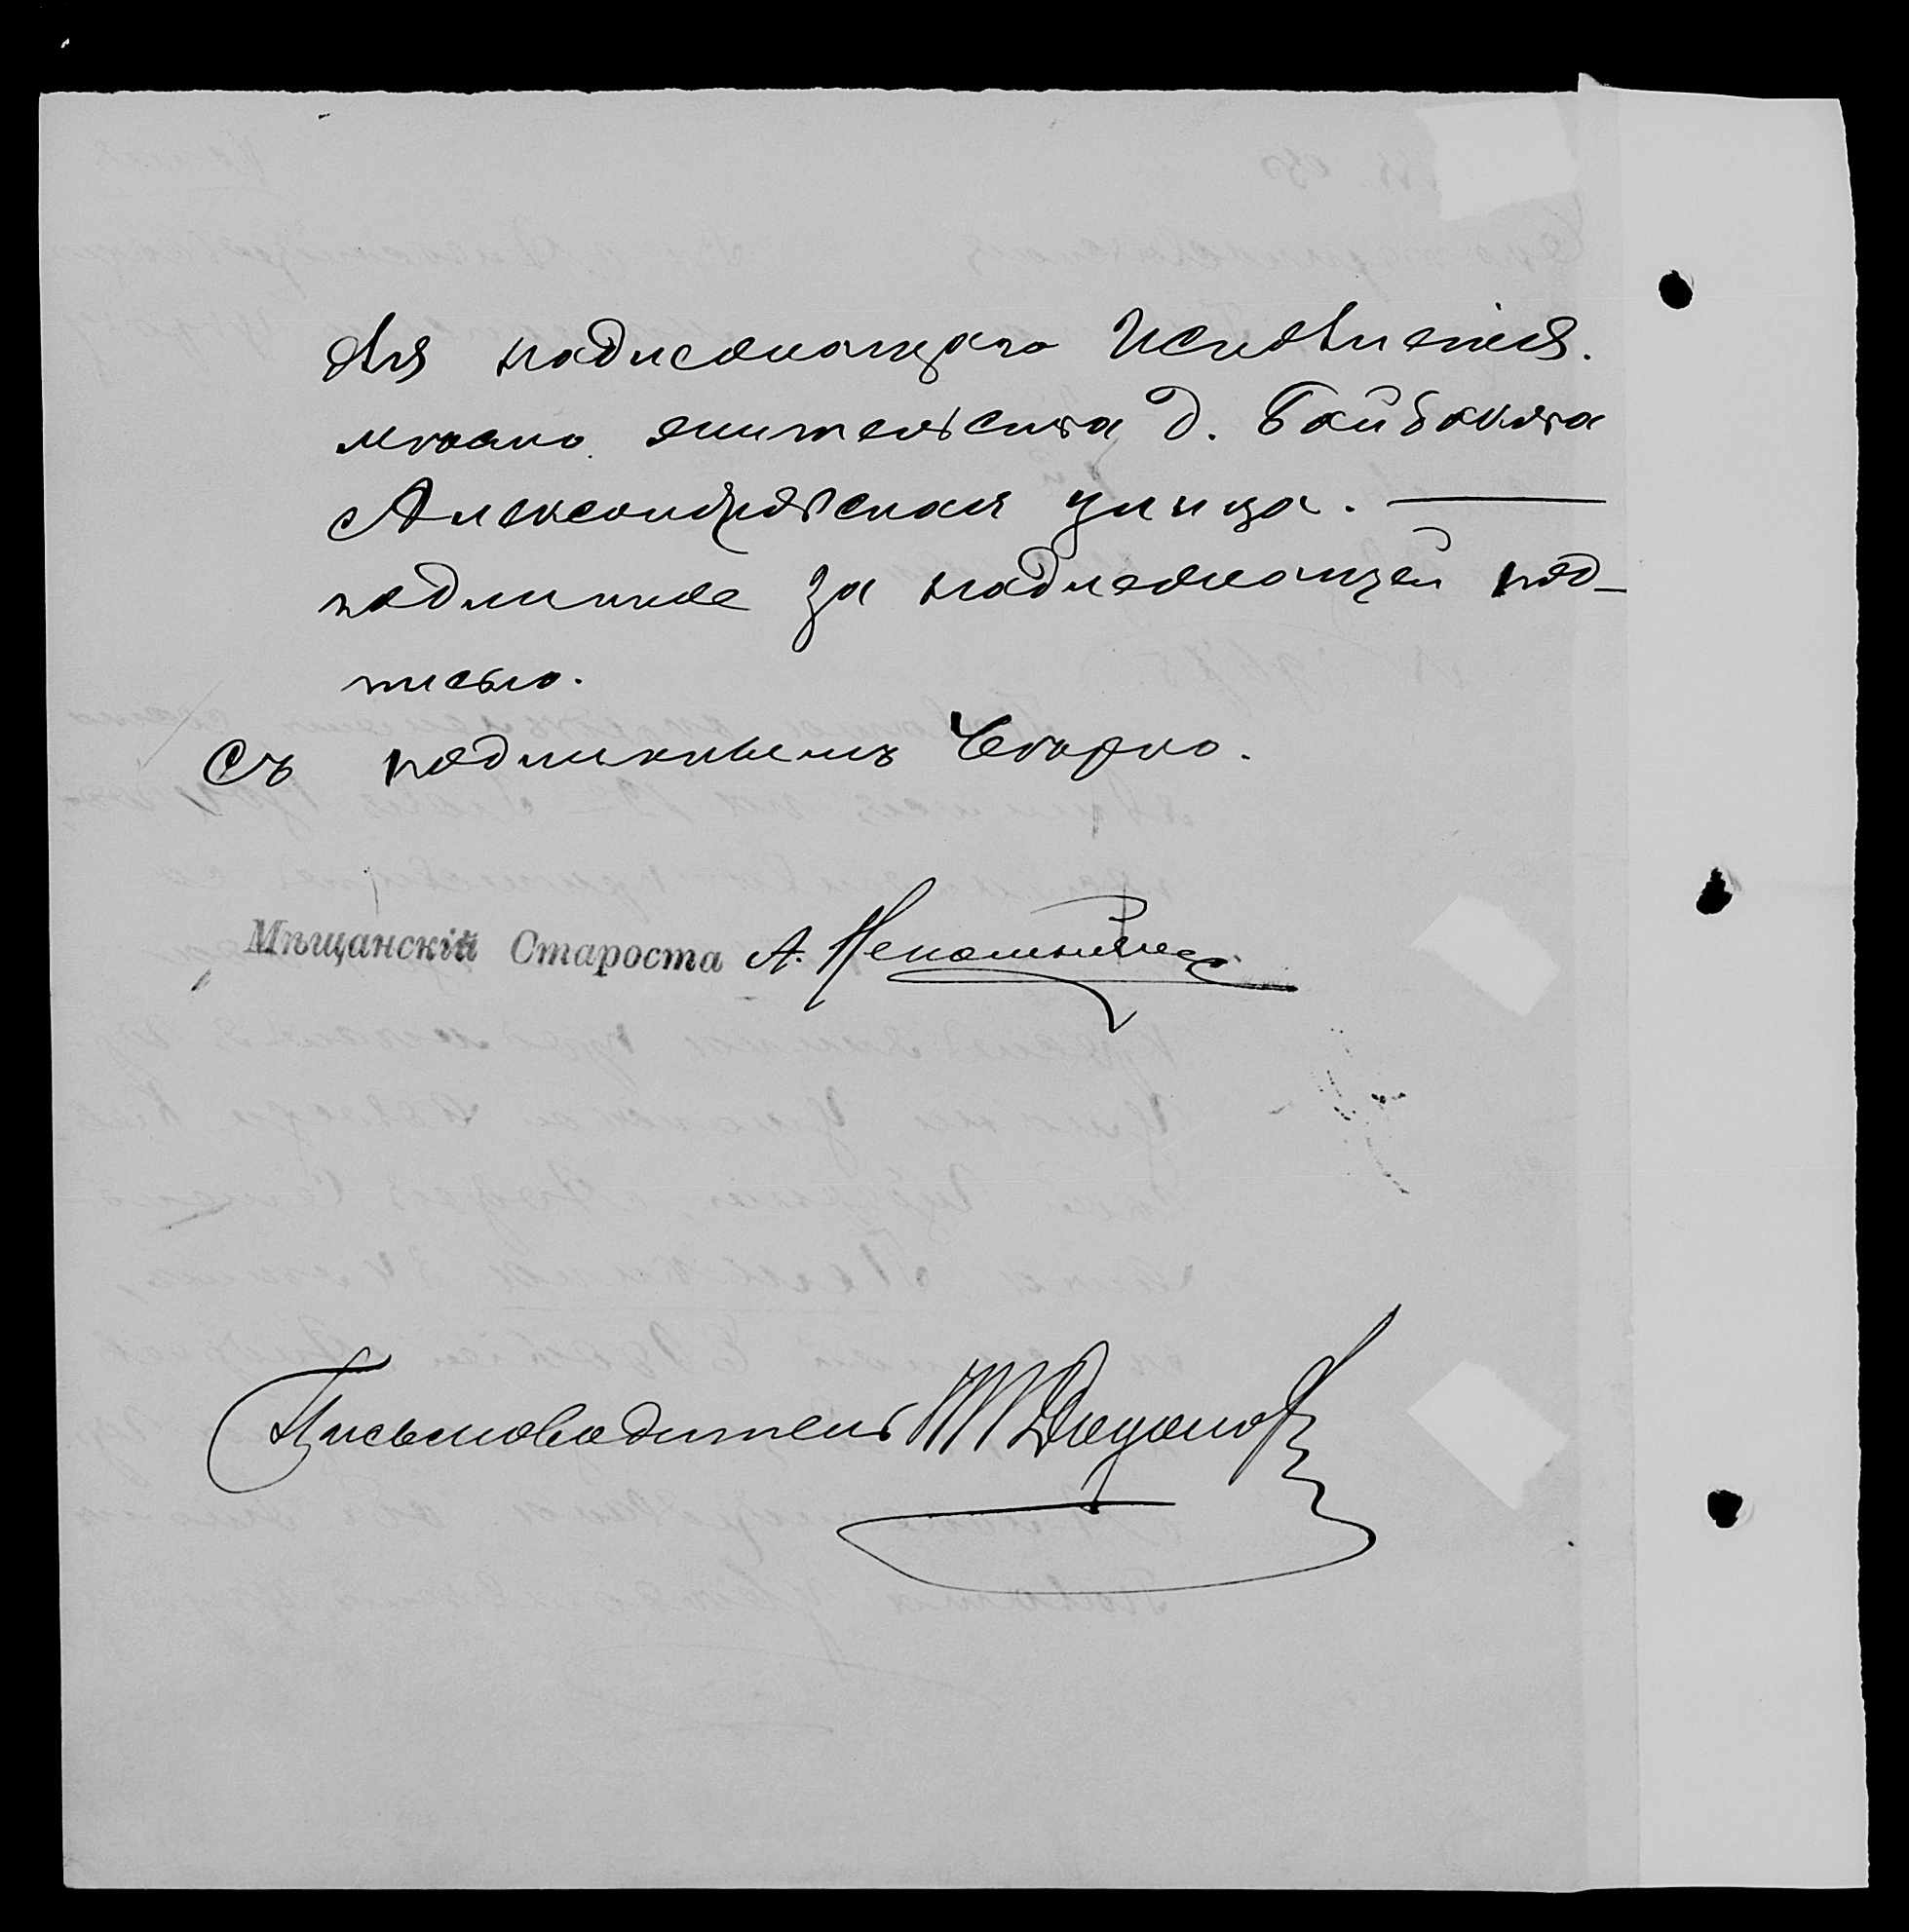 для надлежащаго исполненія.
мѣсто жительства д. Байбакова
Александровская улица. —
подлинное за надлежащей под-
писью.
Съ подлиннымъ вѣрно.
Мѣщанскій Староста А. Непомнящ
Письмоводитель